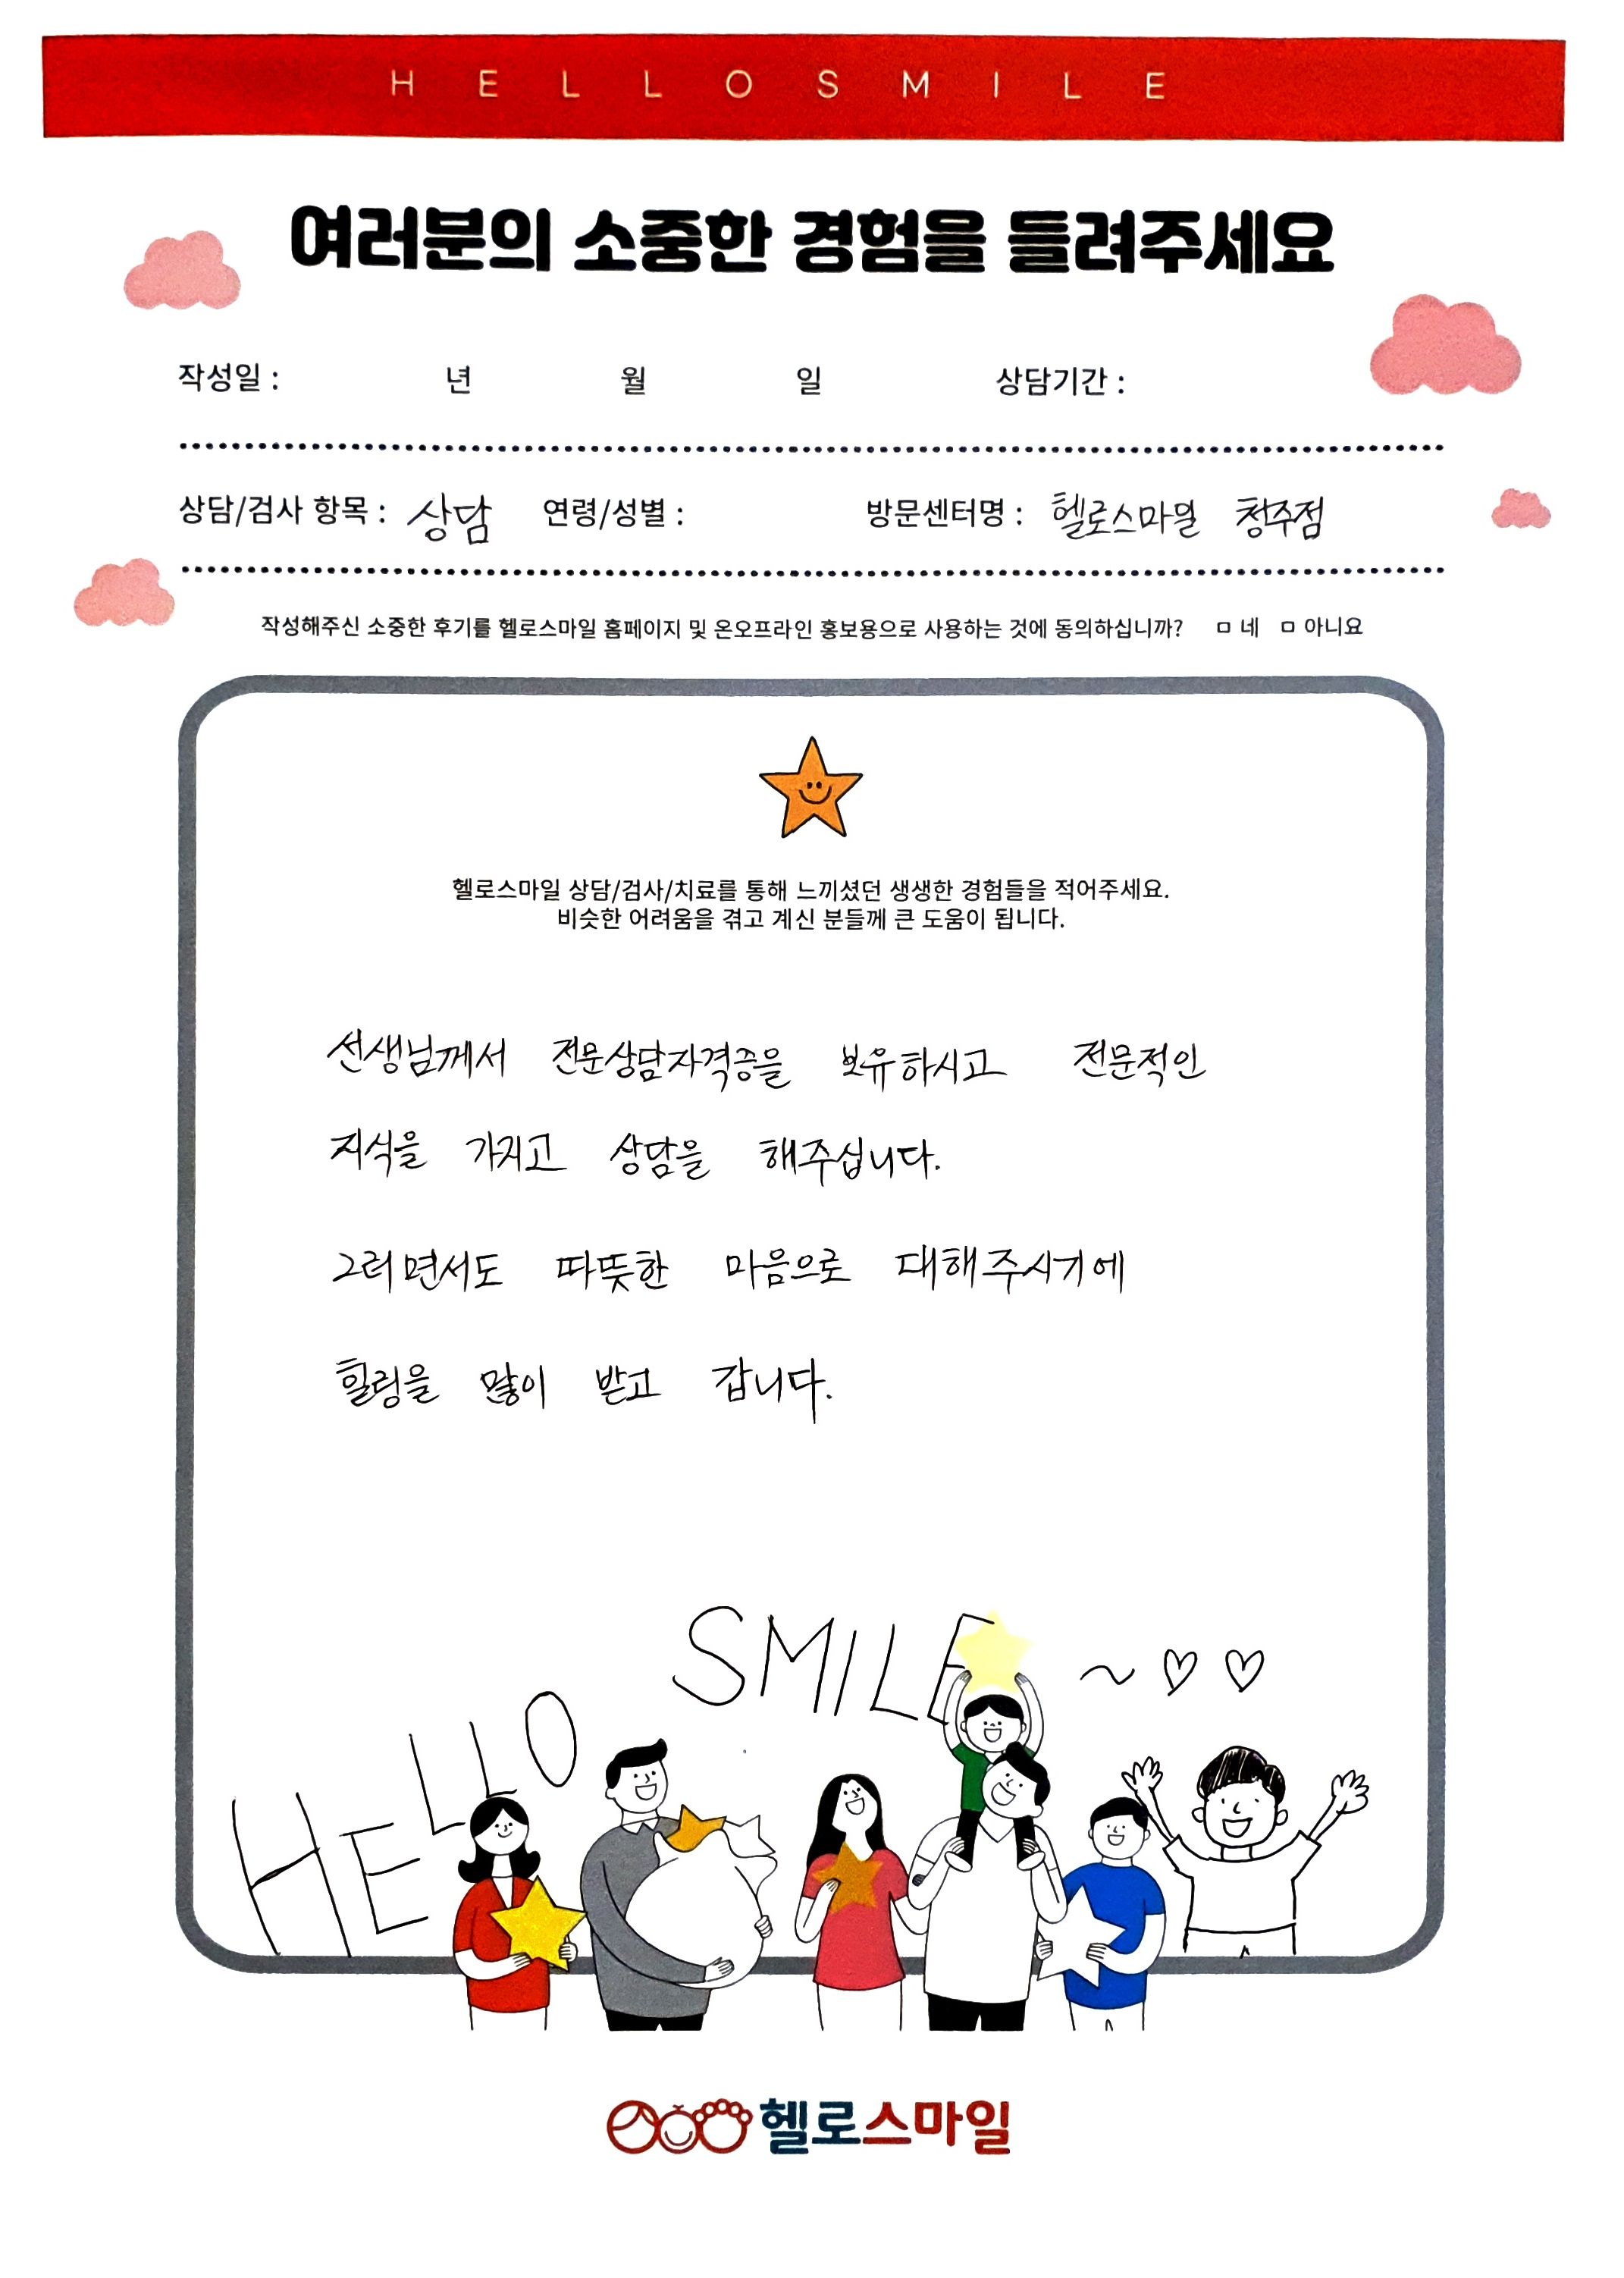 HELLOSMILE
여러분의 소중한 경험을 들려주세요
작성일 : 년 월 일 상담기간 :
상담/검사 항목 : 상담 연령/성별 : 방문센터명 : 헬로스마일 청주점
작성해주신 소중한 후기를 헬로스마일 홈페이지 및 온오프라인 홍보용으로 사용하는 것에 동의하십니까? ㅁ 네 ㅁ 아니요
헬로스마일 상담/검사/치료를 통해 느끼셨던 생생한 경험들을 적어주세요.
비슷한 어려움을 겪고 계신 분들께 큰 도움이 됩니다.
선생님께서 전문상담자격증을 보유하시고 전문적인
지식을 가지고 상담을 해주십니다.
그러면서도 따뜻한 마음으로 대해주시기에
힐링을 많이 받고 갑니다.
HELLO SMILE ~ ♡ ♡
헬로스마일